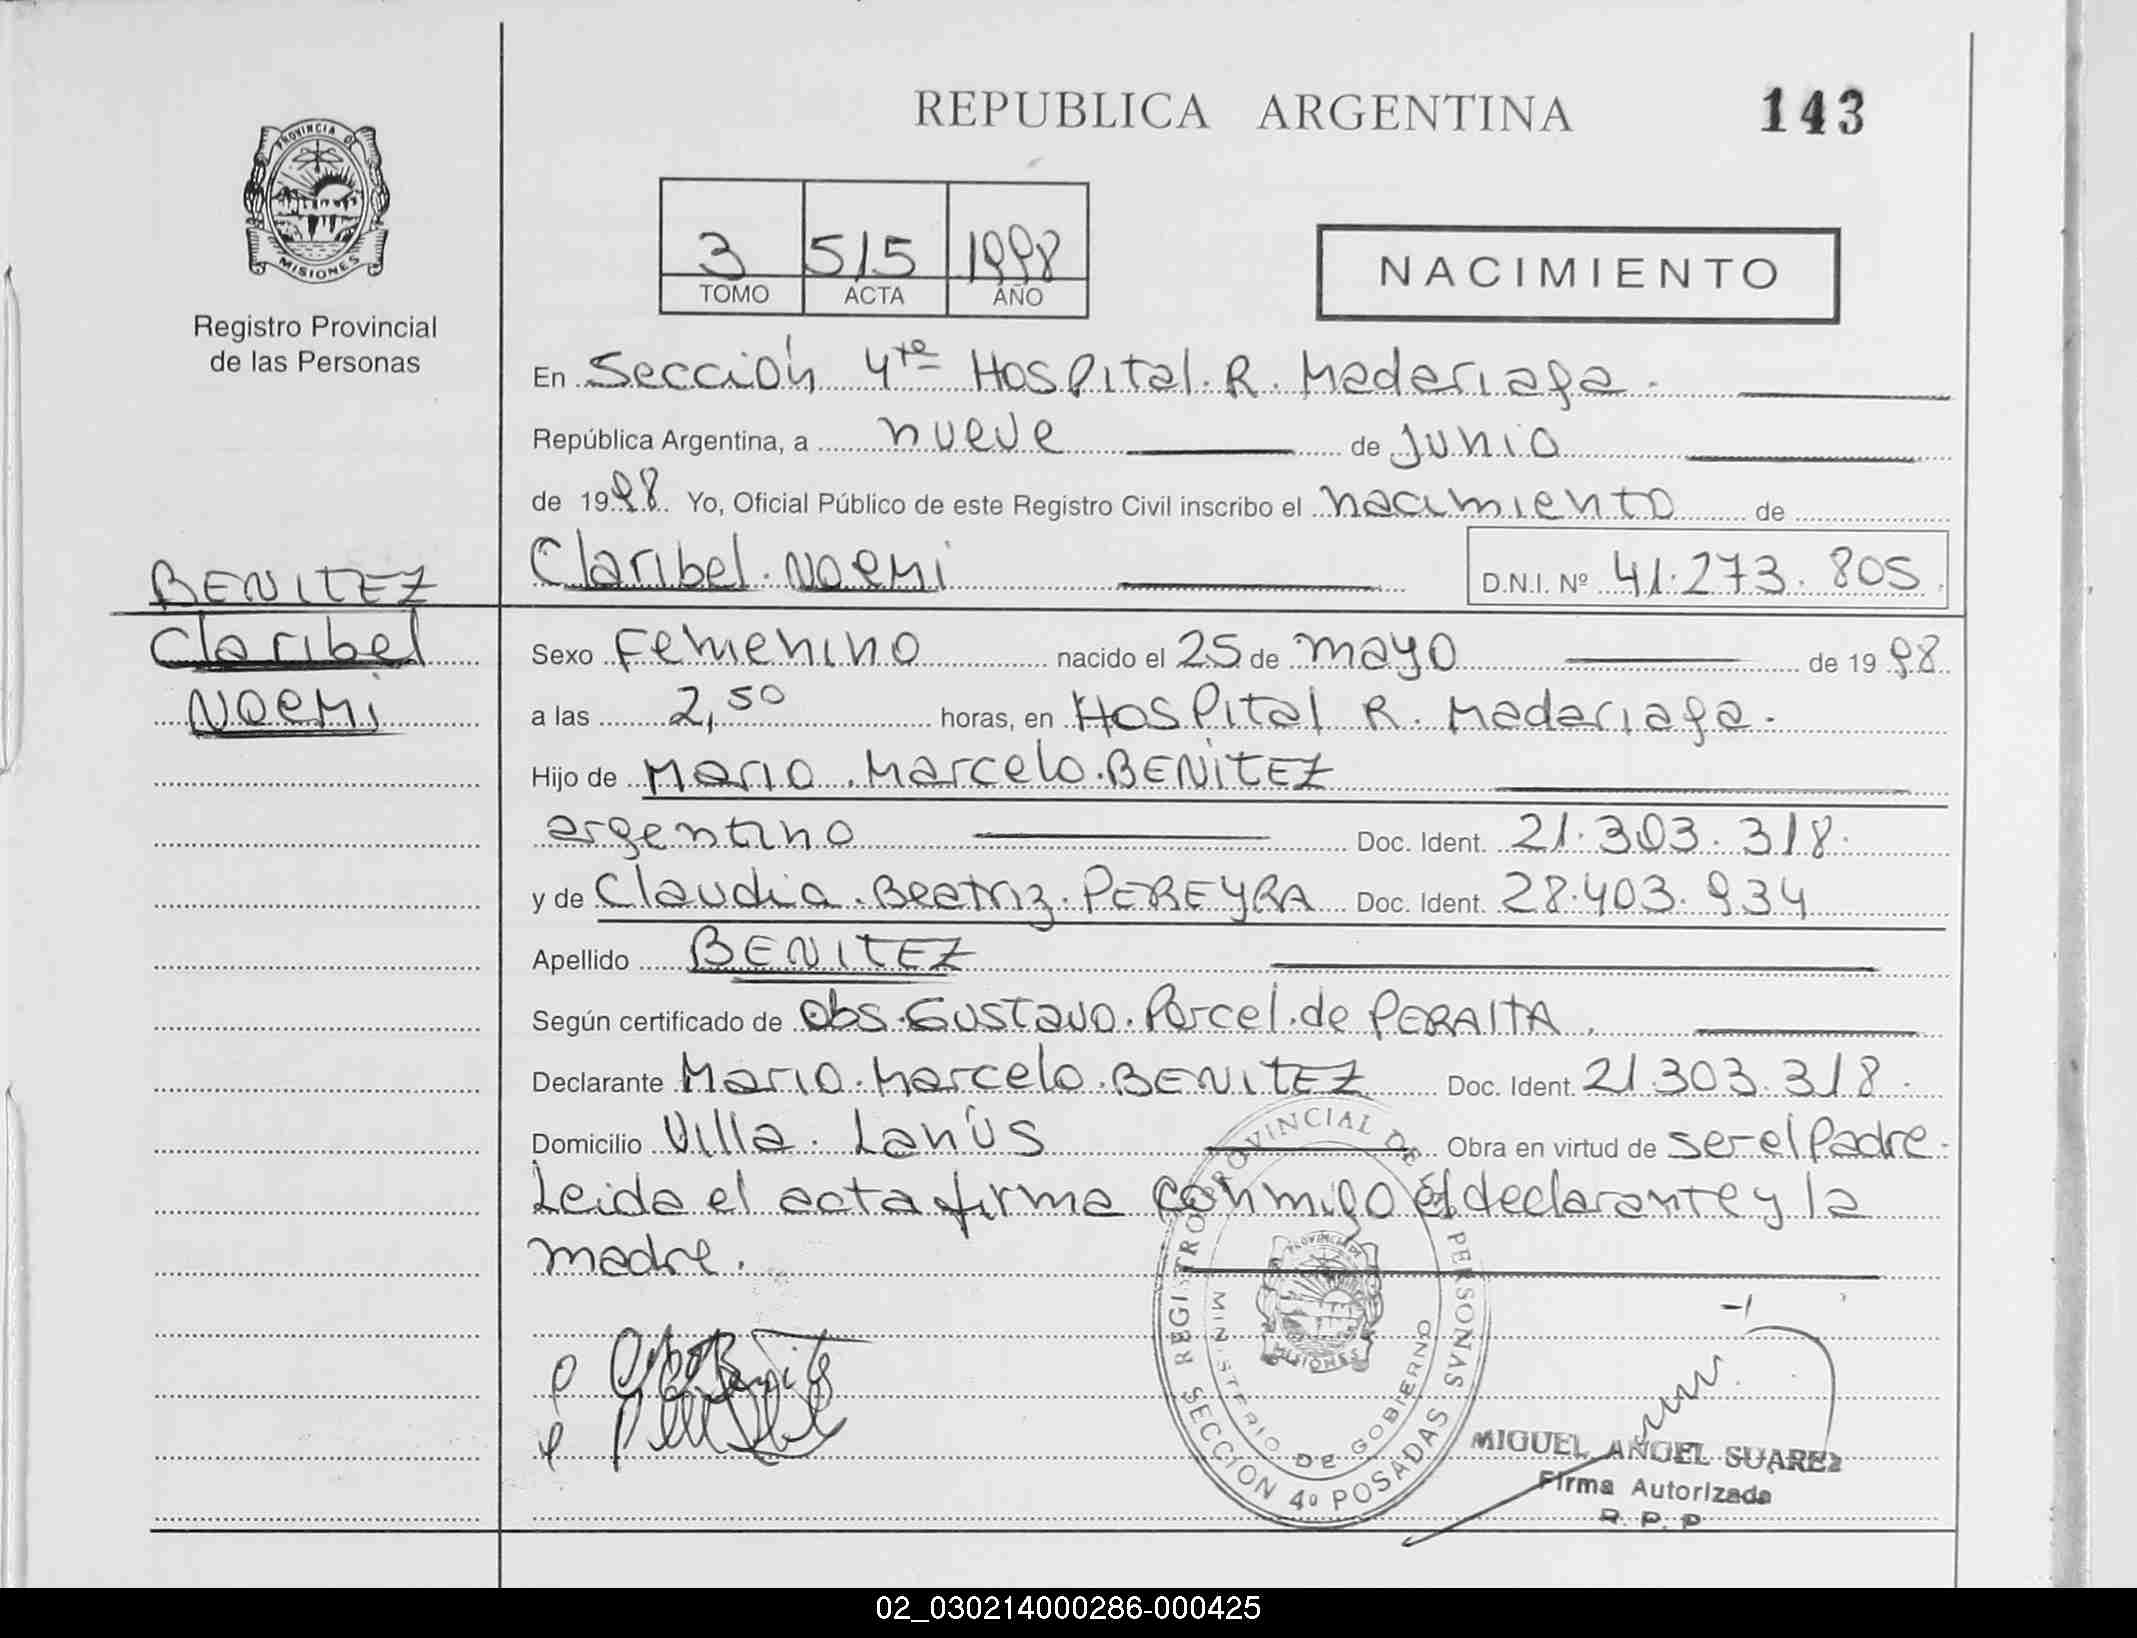 REPUBLICA ARGENTINA 143
PROVINCIA DE
MISIONES
Registro Provincial
de las Personas
3 515 1998
TOMO ACTA AÑO
NACIMIENTO
En Sección 4ta Hospital R. Madariaga.
República Argentina, a nueve de junio
de 1998. Yo, Oficial Público de este Registro Civil inscribo el nacimiento de
Claribel Noemi D.N.I. Nº 41.273.805
BENITEZ
Claribel
Noemi
Sexo Femenino nacido el 25 de mayo de 1998
a las 2,50 horas, en Hospital R. Madariaga.
Hijo de Mario Marcelo BENITEZ
argentino Doc. Ident. 21.303.318.
y de Claudia Beatriz PEREYRA Doc. Ident. 28.403.934
Apellido BENITEZ
Según certificado de Obs. Gustavo Porcel de PERALTA.
Declarante Mario Marcelo BENITEZ Doc. Ident. 21.303.318.
Domicilio Villa Lanús Obra en virtud de ser el Padre.
Leida el acta firma conmigo el declarante y la
madre.
REGISTRO PROVINCIAL DE PERSONAS
MINISTERIO DE GOBIERNO
PROVINCIA DE
MISIONES
SECCION 4º POSADAS
MIGUEL ANGEL SUAREZ
Firma Autorizada
R. P. P
02_030214000286-000425